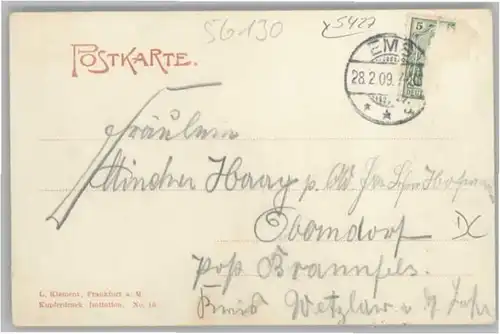 56130
5427
POSTKARTE.
EMS
28.2.09.
5
Fräulein
Minchen Haag p. Ad.
Oberndorf
IX
post Braunfels.
Kreis Wetzlar
L. Klement, Frankfurt a. M.
Kupferdruck Imitation. No. 16.